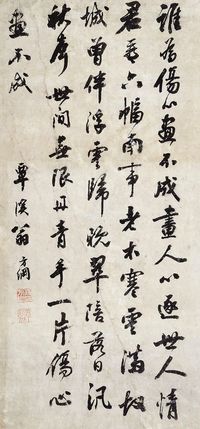 誰為傷心畫不成畫人心逐世人情
君看六幅南事老木寒雲滿故
城曾伴浮雲歸晚翠陪落日汎
秋聲世間無限丹青手一片傷心
畫不成
覃溪翁方綱